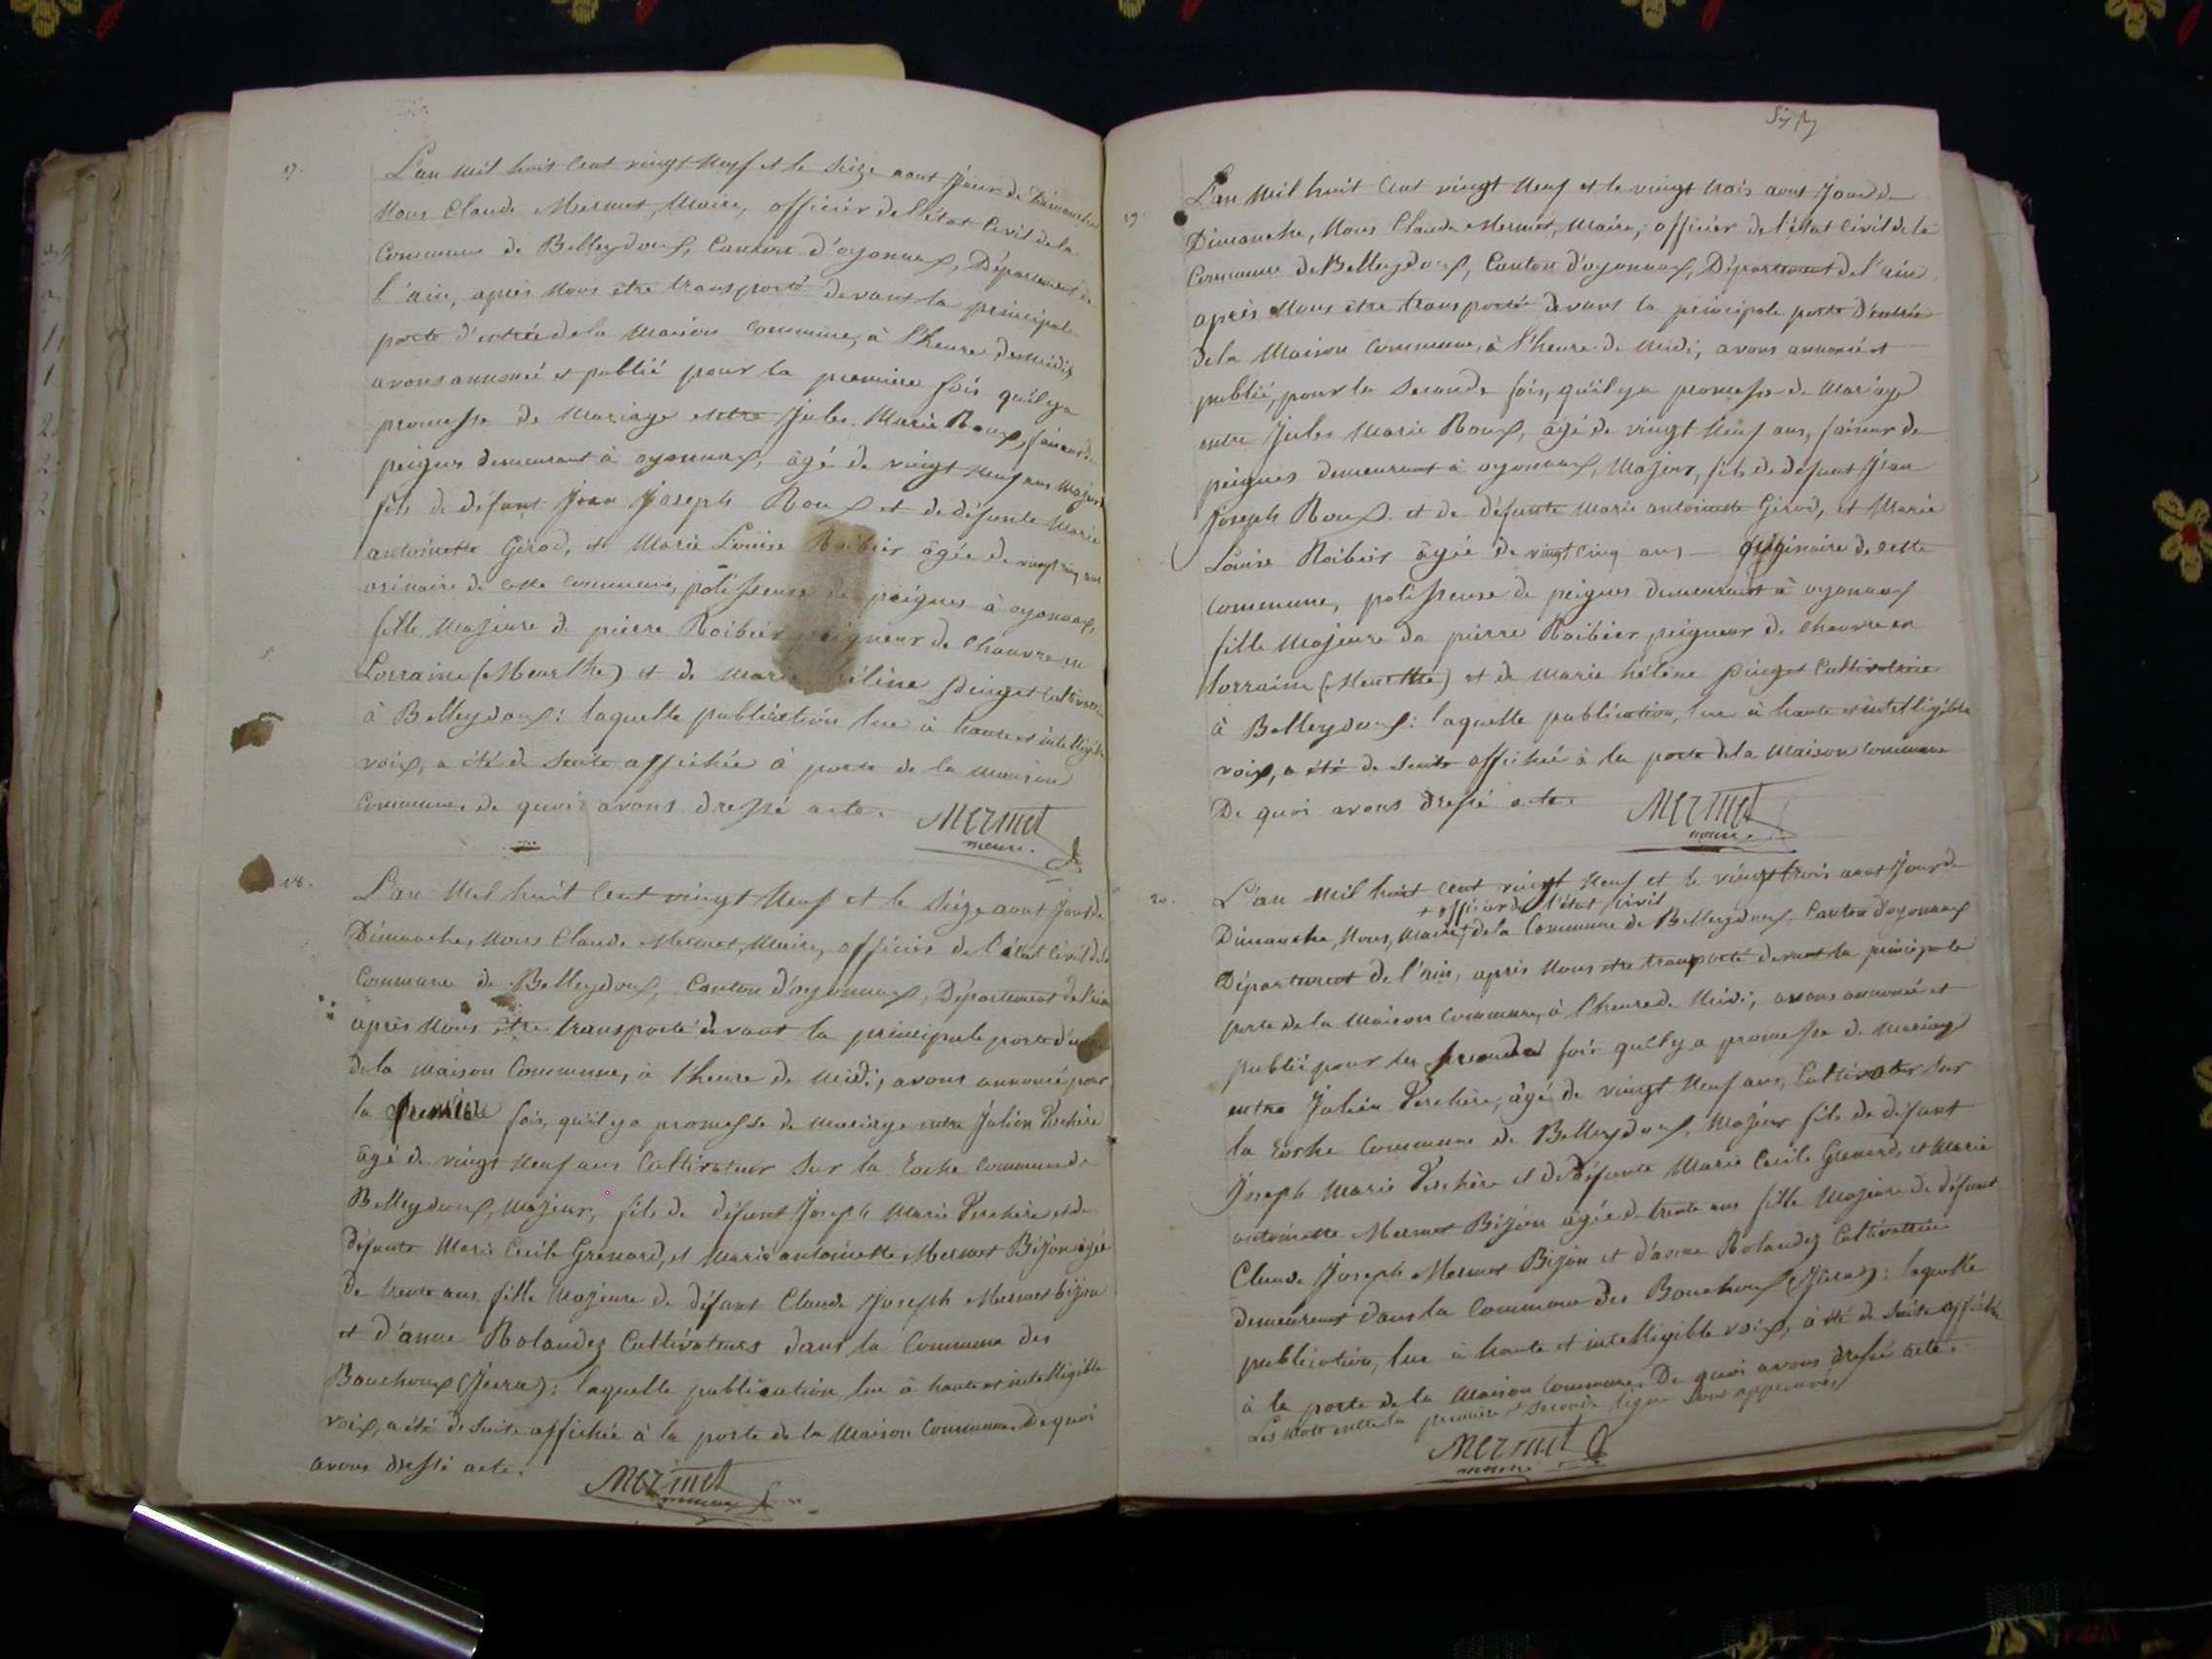 17.
L'an mil huit cent vingt neuf et le seize aout jour de Dimanche
Nous Claude Mermet, Maire, officier de l'état Civil de la
Commune de Belleydoux, Canton d'oyonnax, Département de
l'ain, après nous être transporté devant la principale
porte d'entrée de la maison commune, à l'heure de midi,
avons annoncé et publié pour la première fois qu'il y a
promesse de mariage entre Jules Marie Roux, faiseur de
peignes demeurant à oyonnax, âgé de vingt neuf ans majeur
fils de défunt Jean Joseph Roux et de défunte Marie
antoinette Girod, et Marie Louise Roibier âgée de vingt cinq ans
orinaire de cette commune, polisseuse de peignes à oyonnax,
fille majeure de pierre Roibier peigneur de chanvre en
Lorraine (Meurthe) et de Marie hélène pinget Cultivatrice
à Belleydoux: laquelle publication lue à haute et intelligible
voix, a été de suite affichée à porte de la maison
Commune. de quoi avons dressé acte.
Mermet
maire.
18.
L'an mil huit cent vingt neuf et le seize aout jour de
Dimanche, nous Claude Mermet, Maire, officier de l'état Civil de la
Commune de Belleydoux, Canton d'oyonnax, Département de l'ain
après nous être transporté devant la principale porte d'entrée
de la maison Commune, à l'heure de midi, avons annoncé pour
la première fois, qu'il y a promesse de mariage entre Julien Verchère
âgé de vingt neuf ans Cultivateur sur la Roche Commune de
Belleydoux, majeur, fils de défunt Joseph Marie Verchère et de
défunte Marie Cecile Grenard, et Marie antoinette Mermet Bijon âgée
de trente ans, fille majeure de défunt Claude Joseph Mermet bijon
et d'anne Rolandez Cultivateurs dans la Commune des
Bouchoux (Jura): laquelle publication, lue à haute et intelligible
voix, a été de suite affichée à la porte de la Maison Commune. De quoi
avons dressé acte.
Mermet
19.
L'an mil huit Cent vingt neuf et le vingt trois aout jour de
Dimanche, Nous Claude Mermet, Maire, officier de l'état Civil de la
Commune de Belleydoux, Canton d'oyonnax, Département de l'ain
après nous être transporté devant la principale porte d'entrée
de la Maison Commune, à l'heure de midi, avons annoncé et
publié, pour la seconde fois, qu'il y a promesse de Mariage
entre Jules Marie Roux, âgé de vingt neuf ans, faiseur de
peignes demeurant à oyonnax, Majeur, fils de défunt Jean
Joseph Roux et de défunte Marie antoinette Girod, et Marie
Louise Roibier âgée de vingt cinq ans originaire de cette
commune, polisseuse de peignes demeurant à oyonnax
fille Majeure de pierre Roibier peigneur de chanvre en
lorraine (Meurthe) et de Marie hélène pinget Cultivatrice
à Belleydoux: laquelle publication, lue à haute et intelligible
voix, a été de suite affichée à la porte de la Maison Commune
De quoi avons dressé acte.
Mermet
maire.
20.
L'an mil huit cent vingt neuf et le vingt trois aout jour de
+ officier de l'état civil
Dimanche, Nous, Maire + de la Commune de Belleydoux, Canton d'oyonnax
Département de l'ain, après nous être transporté devant la principale
porte de la Maison Commune, à l'heure de midi, avons annoncé et
publié pour la seconde fois qu'il y a promesse de mariage
entre Julien Verchère, âgé de vingt neuf ans, Cultivateur sur
la Roche Commune de Belleydoux, Majeur fils de défunt
Joseph Marie Verchère et de défunte Marie Cecile Grenard, et Marie
antoinette Mermet Bijon âgée de trente ans fille Majeure de défunt
Claude Joseph Mermet Bijon et d'anne Rolandez Cultivatrice
demeurant dans la Commune des Bouchoux (Jura): laquelle
publication, lue à haute et intelligible voix, a été de suite affichée
à la porte de la Maison Commune. De quoi avons dressé acte.
Les mots entre la première et seconde ligne sont approuvés
Mermet
maire